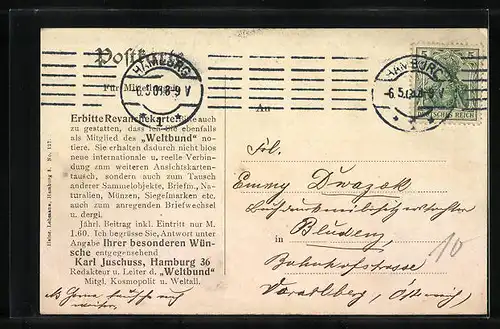 Postkarte
Für Mitteilungen
An
HAMBURG
6.5.08.8-9 V
* 1 *
HAMBURG
-6.5.08.8-9 V
5 5
DEUTSCHES REICH
Erbitte Revanchekarte, bitte auch
zu gestatten, dass ich Sie ebenfalls
als Mitglied des „Weltbund" no-
tiere. Sie erhalten dadurch nicht blos
neue internationale u. reelle Verbin-
dung zum weiteren Ansichtskarten-
tausch, sondern auch zum Tausch
anderer Sammelobjekte, Briefm., Na-
turalien, Münzen, Siegelmarken etc.
auch zum anregenden Briefwechsel
u. dergl.
Jährl. Beitrag inkl. Eintritt nur M.
1.60. Ich begrüsse Sie, Antwort unter
Angabe Ihrer besonderen Wün-
sche entgegensehend
Karl Juschuss, Hamburg 36
Redakteur u. Leiter d. „Weltbund"
Mitgl. Kosmopolit u. Weltall.
Lehmann, Hamburg 1. No. 127.
Frl.
Emmy Dwazak
in Bludenz
Bahnhofstrasse
Vorarlberg, (Österreich)
10